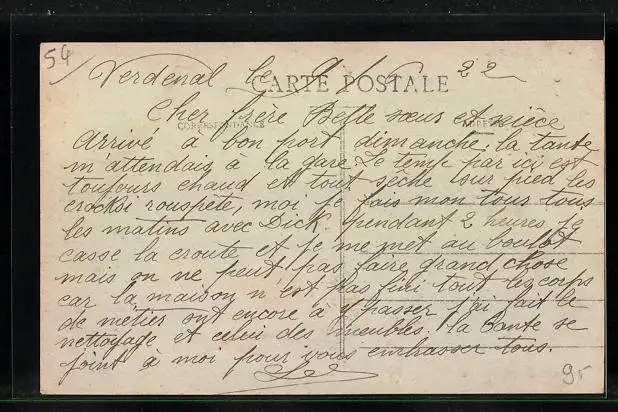 54
Verdenal le 9/6 22
CARTE POSTALE
CORRESPONDANCE ADRESSE
Cher frère Belle soeur et nièce
Arrivé à bon port dimanche. la tante
m'attendais à la gare. le temps par ici est
toujours chaud et tout sèche sur pied les
crocksi rouspète, moi je fais mon tour tous
les matins avec Dick. pendant 2 heures je
casse la croute et je me met au boulot
mais on ne peut pas faire grand chose
car la maison n'est pas fini tout les corps
de métier ont encore a y passer j'ai fait le
nettoyage et celui des meubles. la tante se
joint à moi pour vous embrasser tous.
95